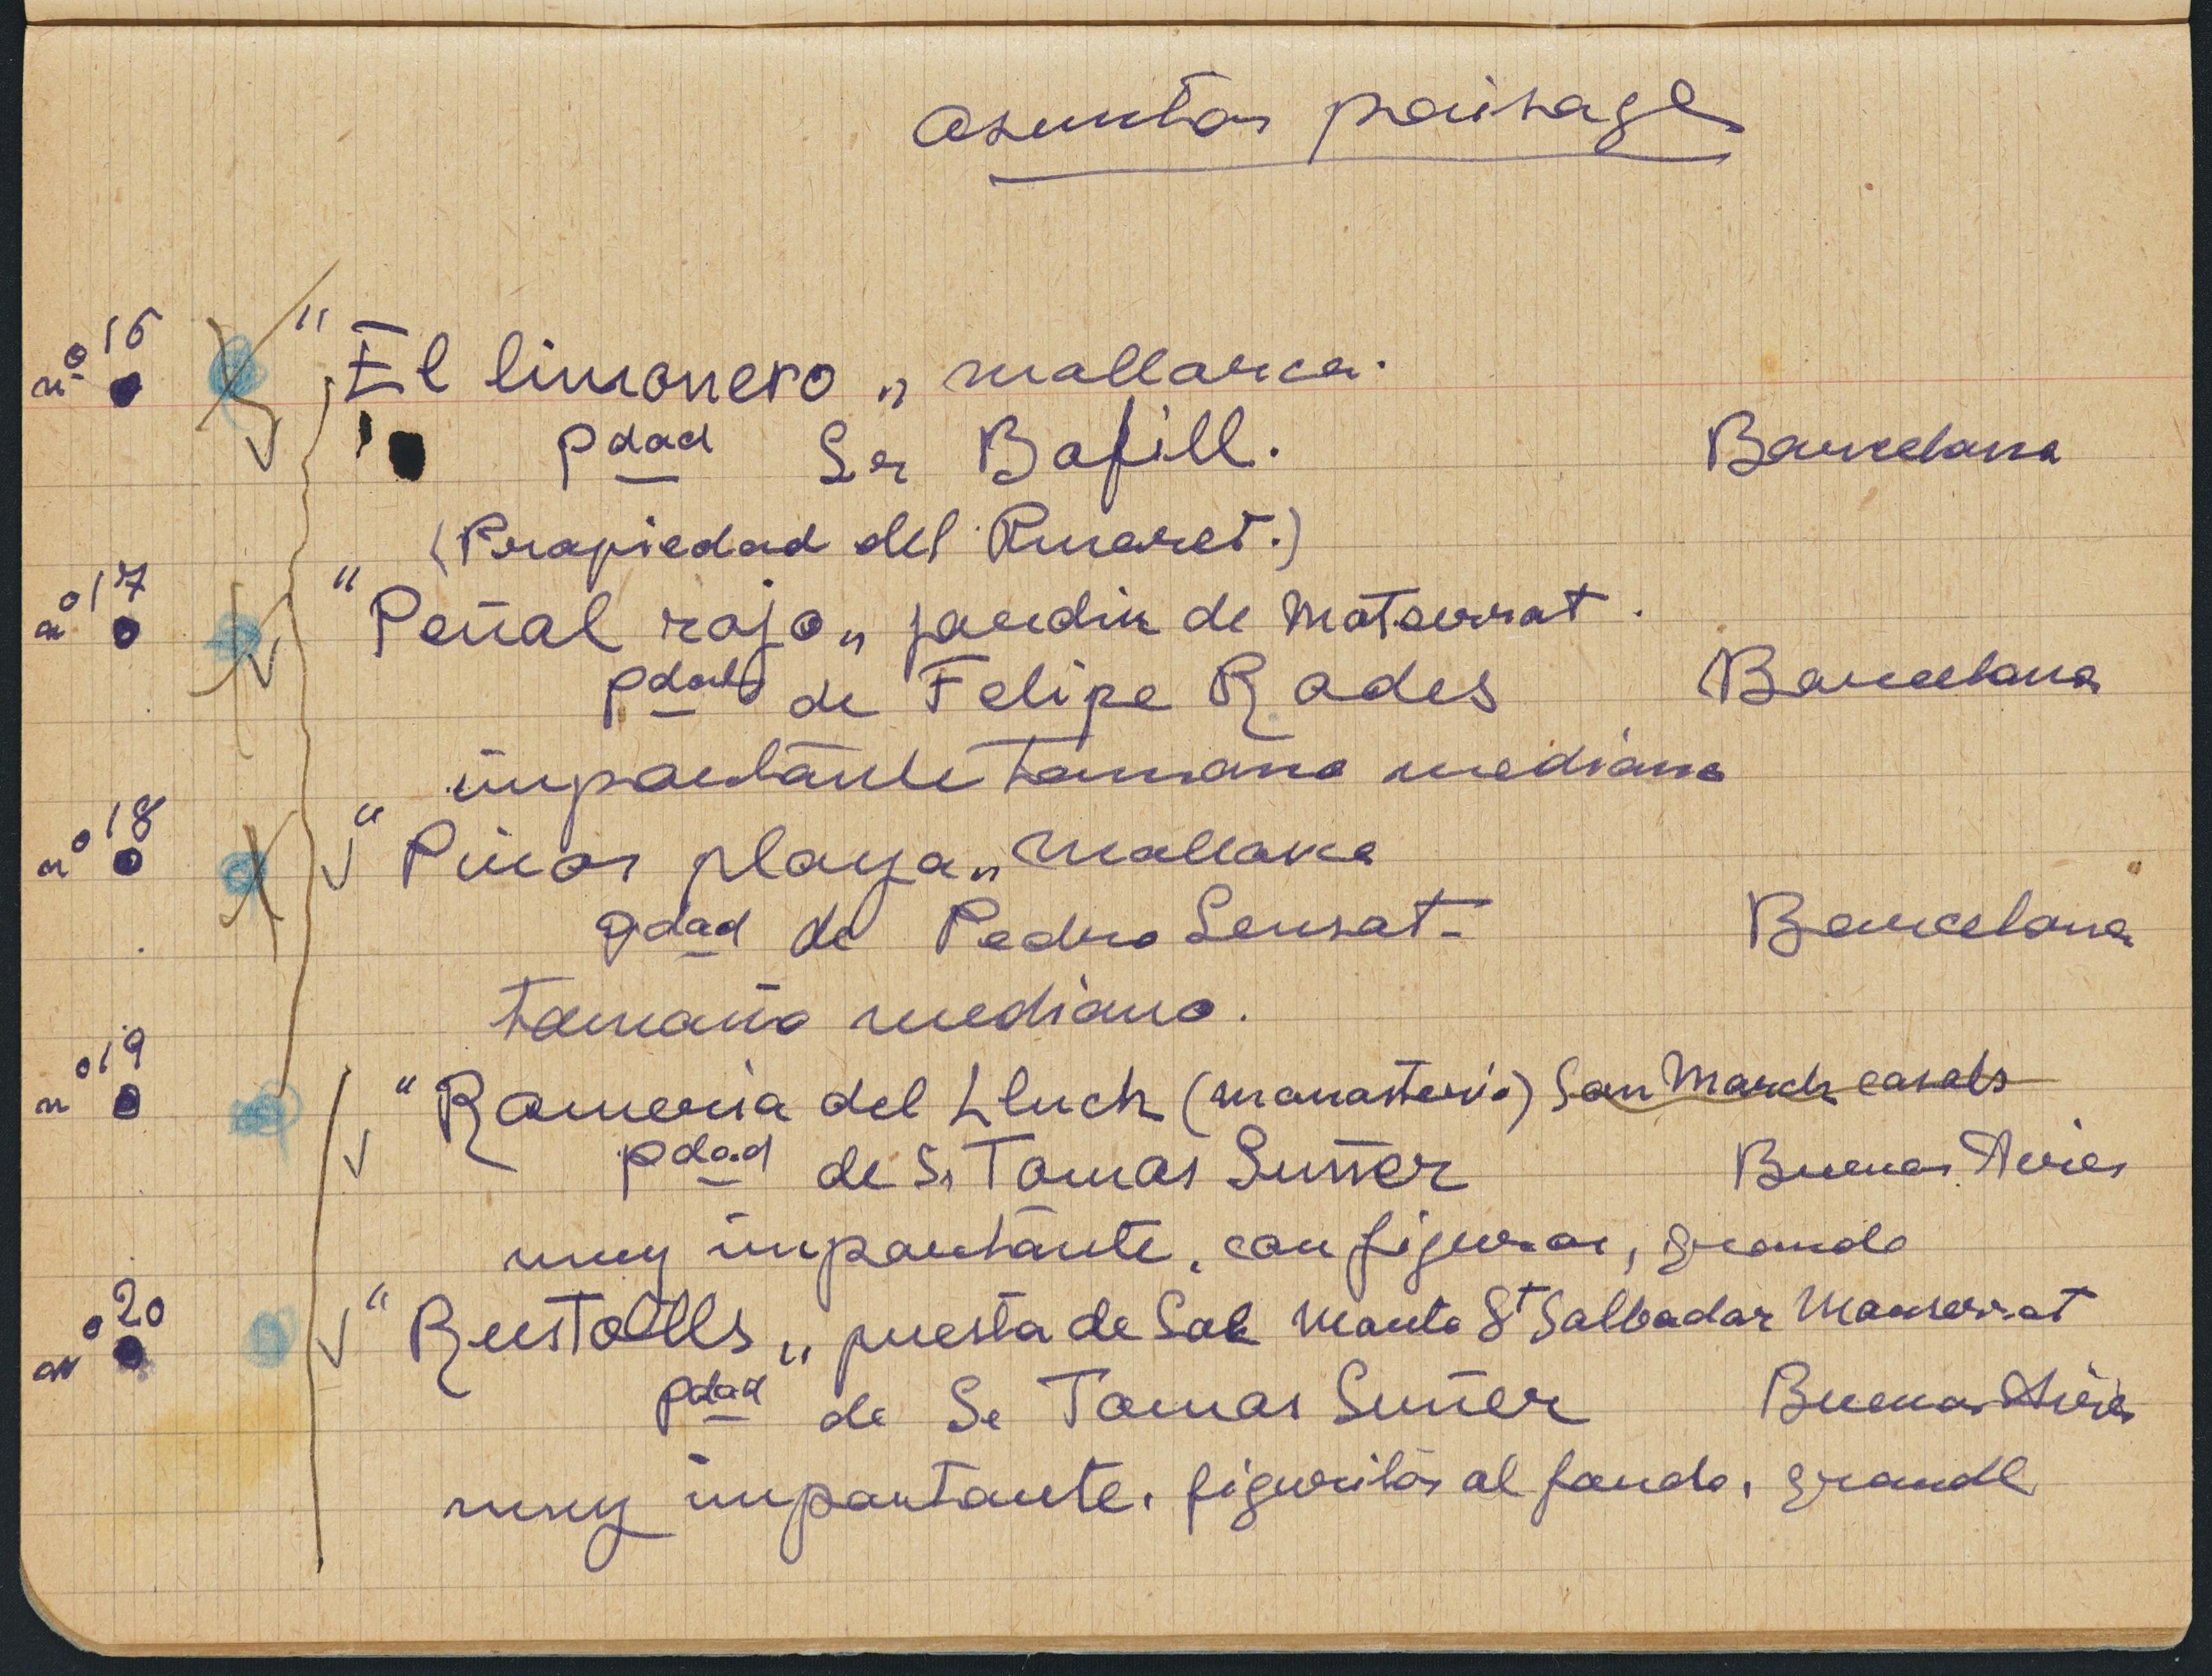 asuntos paisages
nº 16 "El limonero„ mallorca.
pdad Sr Bofill. Barcelona
(Propiedad del Pinaret.)
nº 17 "Peñal rojo„ jardin de Motserrat.
pdad de Felipe Rodes Barcelona
importante tamaño mediano
nº 18 "Pinos playa„ Mallorca
pdad de Pedro Sensat- Barcelona
tamaño mediano.
nº 19 "Romeria del Lluch (monasterio) San March casals
pdad de Sr Tomas Suñer Buenos Aires
muy importante, con figuras, grande
nº 20 "Rustolls„ puesta de Sol Monte St Salbador Monserrat
pdad de Sr Tomas Suñer Buenos Aires
muy importante, figuritas al fondo, grande